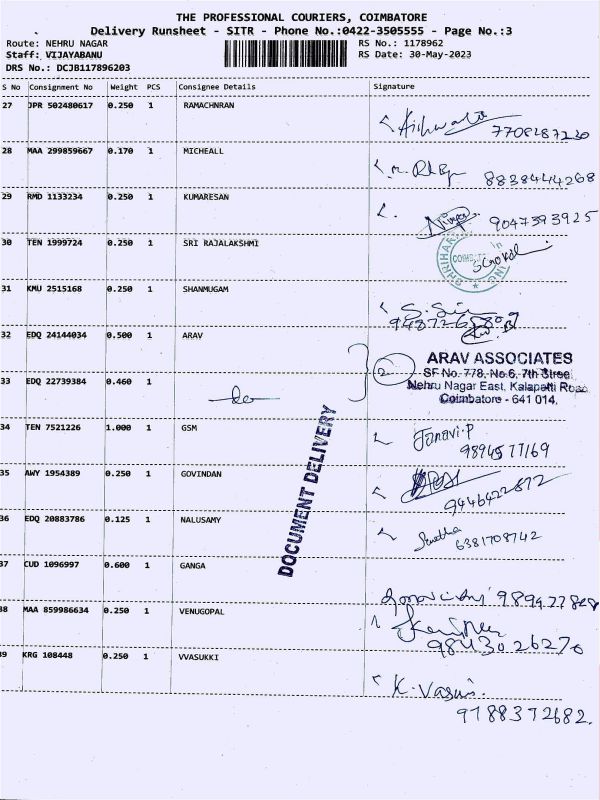 THE PROFESSIONAL COURIERS, COIMBATORE
Delivery Runsheet - SITR - Phone No.:0422-3505555 - Page No.:3
Route: NEHRU NAGAR RS No.: 1178962
Staff: VIJAYABANU RS Date: 30-May-2023
DRS No.: DCJB117896203
S No Consignment No Weight PCS Consignee Details Signature
27 JPR 502480617 0.250 1 RAMACHNRAN
28 MAA 299859667 0.170 1 MICHEALL
8838444268
29 RMD 1133234 0.250 1 KUMARESAN
9047393925
30 TEN 1999724 0.250 1 SRI RAJALAKSHMI
31 KMU 2515168 0.250 1 SHANMUGAM
32 EDQ 24144034 0.500 1 ARAV
2 ARAV ASSOCIATES
SF No. 778, No.6, 7th Street
33 EDQ 22739384 0.460 1
Nehru Nagar East, Kalapatti Road
Coimbatore - 641 014.
DOCUMENT DELIVERY
34 TEN 7521226 1.000 1 GSM Janavi.P
9894577169
35 AWY 1954389 0.250 1 GOVINDAN
9446422872
36 EDQ 20883786 0.125 1 NALUSAMY
6381708742
37 CUD 1096997 0.600 1 GANGA
38 MAA 859986634 0.250 1 VENUGOPAL
9843026270
39 KRG 108448 0.250 1 VVASUKKI
K. Vasuki.
9788372682.